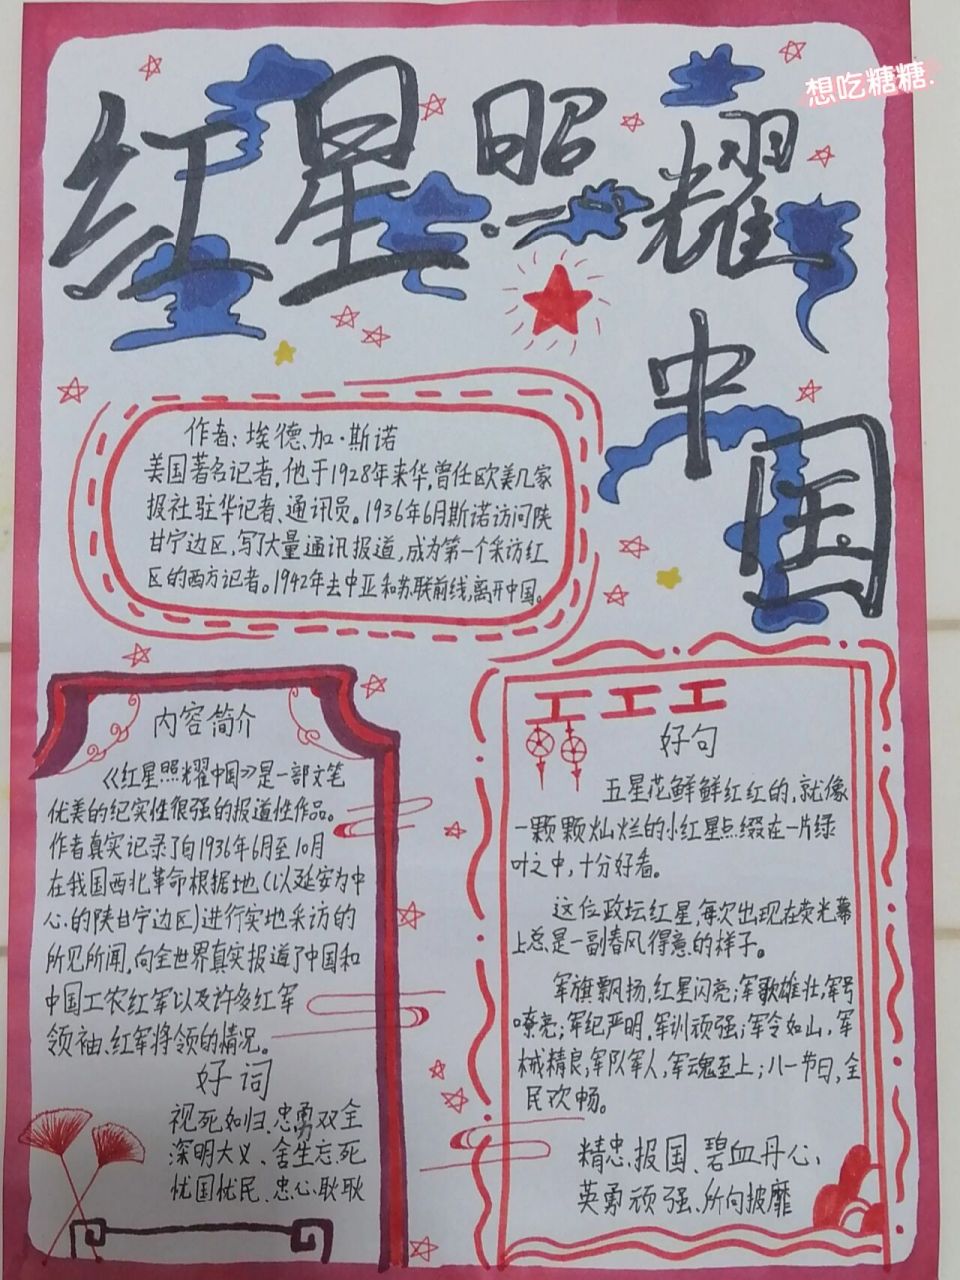 红星照耀
中国
想吃糖糖.
作者:埃德.加·斯诺
美国著名记者,他于1928年来华,曾任欧美几家
报社驻华记者、通讯员。1936年6月斯诺访问陕
甘宁边区,写了大量通讯报道,成为第一个采访红
区的西方记者。1942年去中亚和苏联前线,离开中国。
内容简介
《红星照耀中国》是一部文笔
优美的纪实性很强的报道性作品。
作者真实记录了自1936年6月至10月
在我国西北革命根据地(以延安为中
心的陕甘宁边区)进行实地采访的
所见所闻,向全世界真实报道了中国和
中国工农红军以及许多红军
领袖、红军将领的情况。
好词
视死如归、忠勇双全
深明大义、舍生忘死
忧国忧民、忠心耿耿
好句
五星花鲜鲜红红的,就像
一颗颗灿烂的小红星点缀在一片绿
叶之中,十分好看。
这位政坛红星,每次出现在荧光幕
上总是一副春风得意的样子。
军旗飘扬,红星闪亮;军歌雄壮,军号
嘹亮;军纪严明,军训顽强;军令如山,军
械精良;军队军人,军魂至上;八一节日,全
民欢畅。
精忠报国、碧血丹心、
英勇顽强、所向披靡